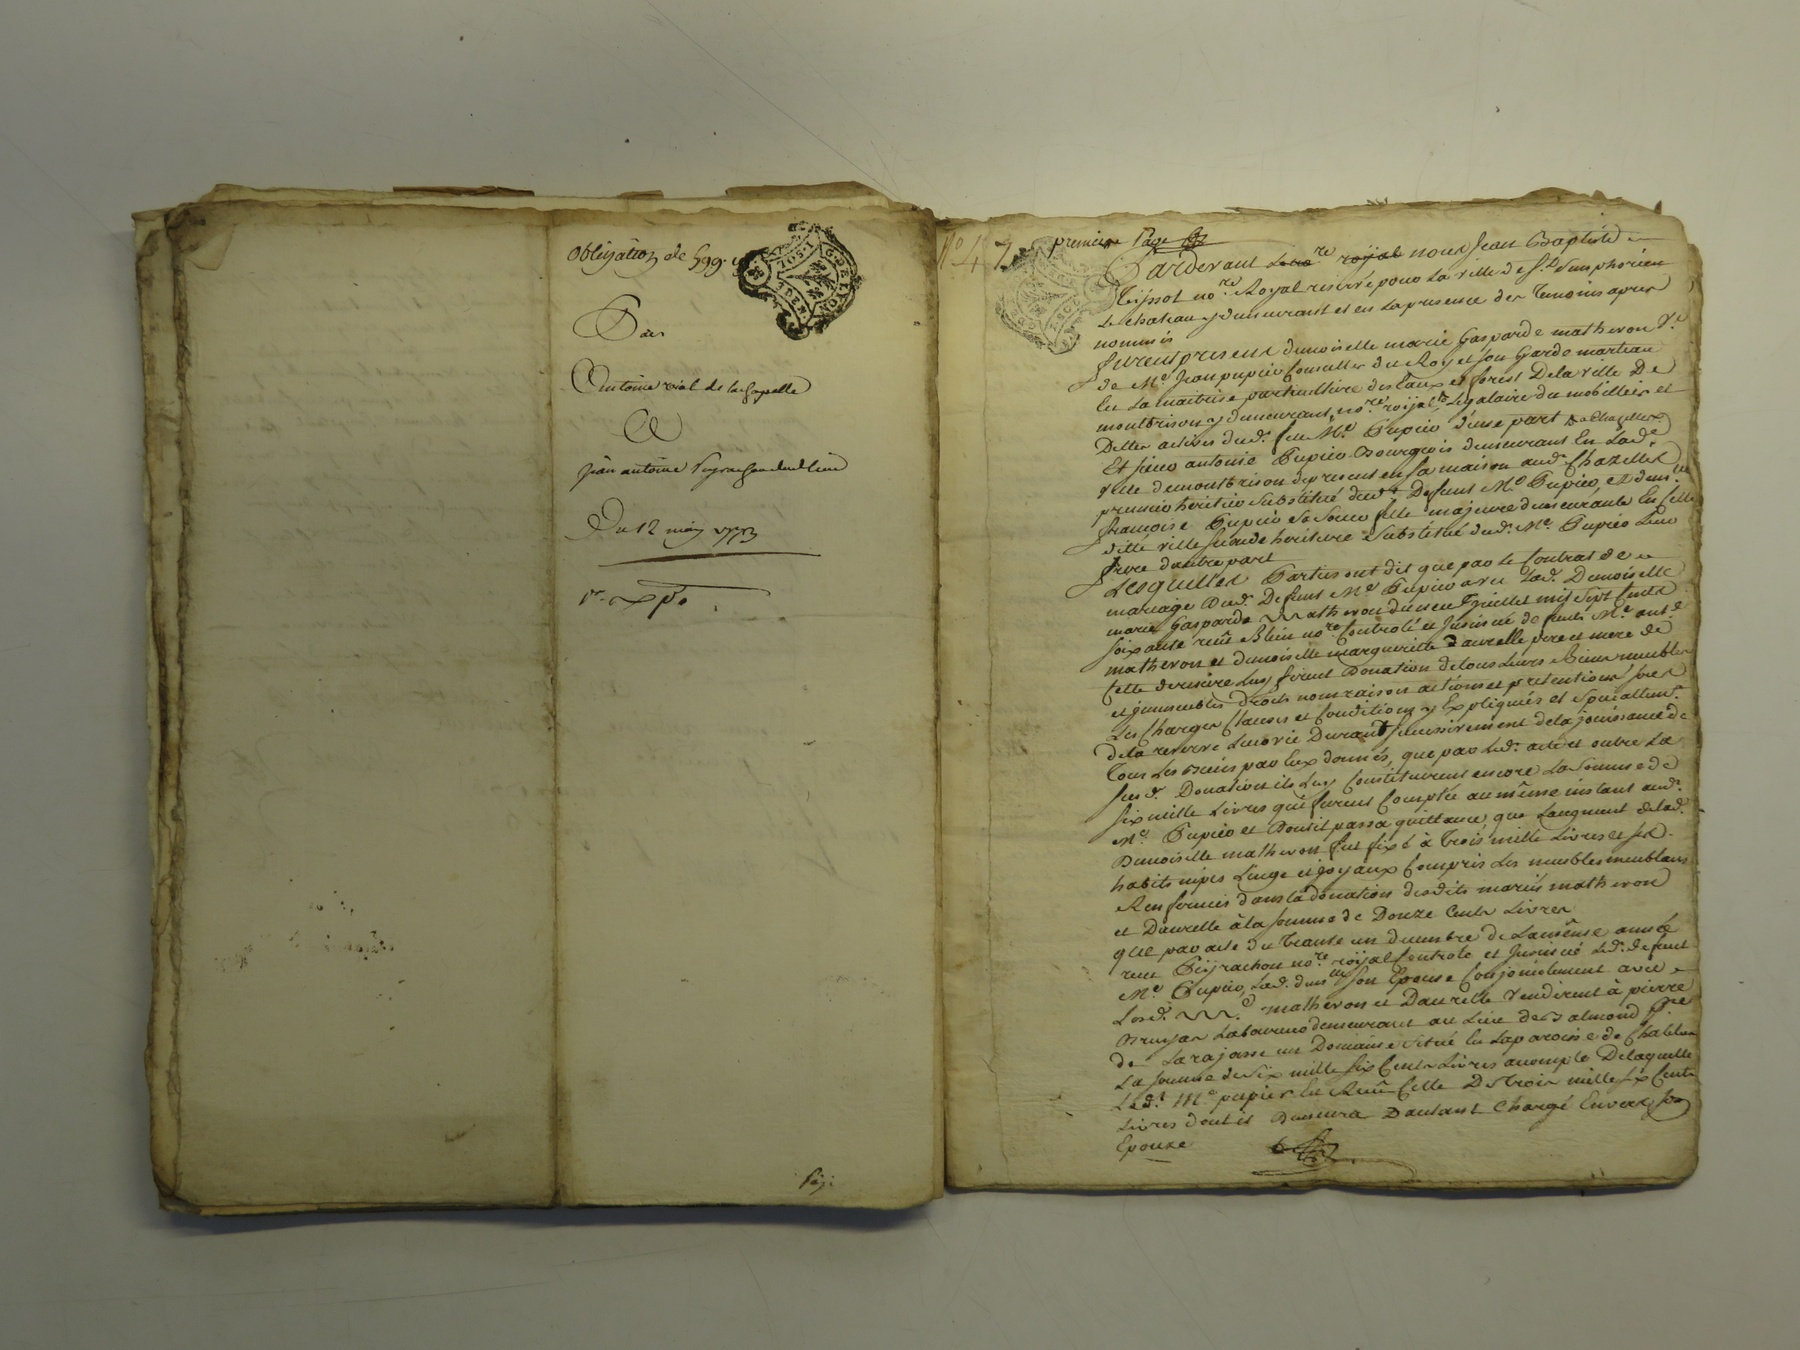 Obligation de 599.
Par
Antoine vial de la chapelle
A
Jean antoine
Du 12 may 1773
1re Exp.on
N° 47
premiere Page
Pardevant royal nous Jean Baptiste
Teyssot no.re Royal reservé pour la ville de s.t Simphorien
Le chateau y demeurant et en la presence des Temoins apres
nommés
furent presents demoiselle marie Gasparde matheron V.e
de M.e Jean pupier Conseiller du Roy et son Garde marteau
En La maitrise particulliere des Eaux et forest De la ville De
montbrison y demeurant, Legataire du mobillier et
Dettes actives dud. feu M.e Pupier d'une part
Et sieur antoine Pupier Bourgeois demeurant En Lad.e
ville de montbrison de present en sa maison aud. Chazelles
premier heritier Substitué dud.t Defunt M.e Pupier, et dem.lle
françoise Pupier Sa Soeur fille majeure demeurante En Celle
ditte ville seconde heritiere Substitué dud. M.e Pupier Leur
frere d'autre part
Lesquelles Parties ont dit que par le Contrat de
mariage Dud. Defunt M.e Pupier avec Lad. Demoiselle
marie Gasparde matheron du neuf Juillet mil Sept Cents
soixante reçu Blein no.re Controlé et Insinué de feus M.e ant.e
matheron et demoiselle marguerite Daurelle pere et mere de
Cette derniere Luy firent Donation de tous Leurs Biens meubles
et immeubles droits noms raison actions et pretentions sous
Les Charges Clauses et Conditions y Expliquées et Specialem.t
de la reserve Leur vie Durant Successivement de la jouissance de
Tous Les Biens par Eux donnés, que par Led. acte et outre La
sus d. Donation ils Luy Constituerent encore La Somme de
six mille Livres qui furent Comptée au même instant aud.
M.e Pupier et Dont il passa quittance, que Laugment de lad.
Demoiselle matheron fut fixé à trois mille Livres et ses
habits nipes Linge et joyaux Compris Les meubles meublans
Renfermés dans la donation desdits mariés matheron
et Daurelle à la somme de Douze Cents Livres
que par acte du trante un decembre de La même année
reçu Peyrachon no.re royal Controlé et Insinué Led. defunt
M.e Pupier, Lad. dem.lle son Epouse Conjointement avec
Lesd. matheron et Daurelle Vendirent à pierre
Laboureur demeurant au Lieu de p.sse
de Larajasse un Domaine Situé En La paroisse de
La somme de Six mille six Cents Livres acompte De laquelle
Led.t M.e pupier En Reçu Celle De trois mille six Cents
Livres dont il Demeura Dautant Chargé Envers son
Epouze